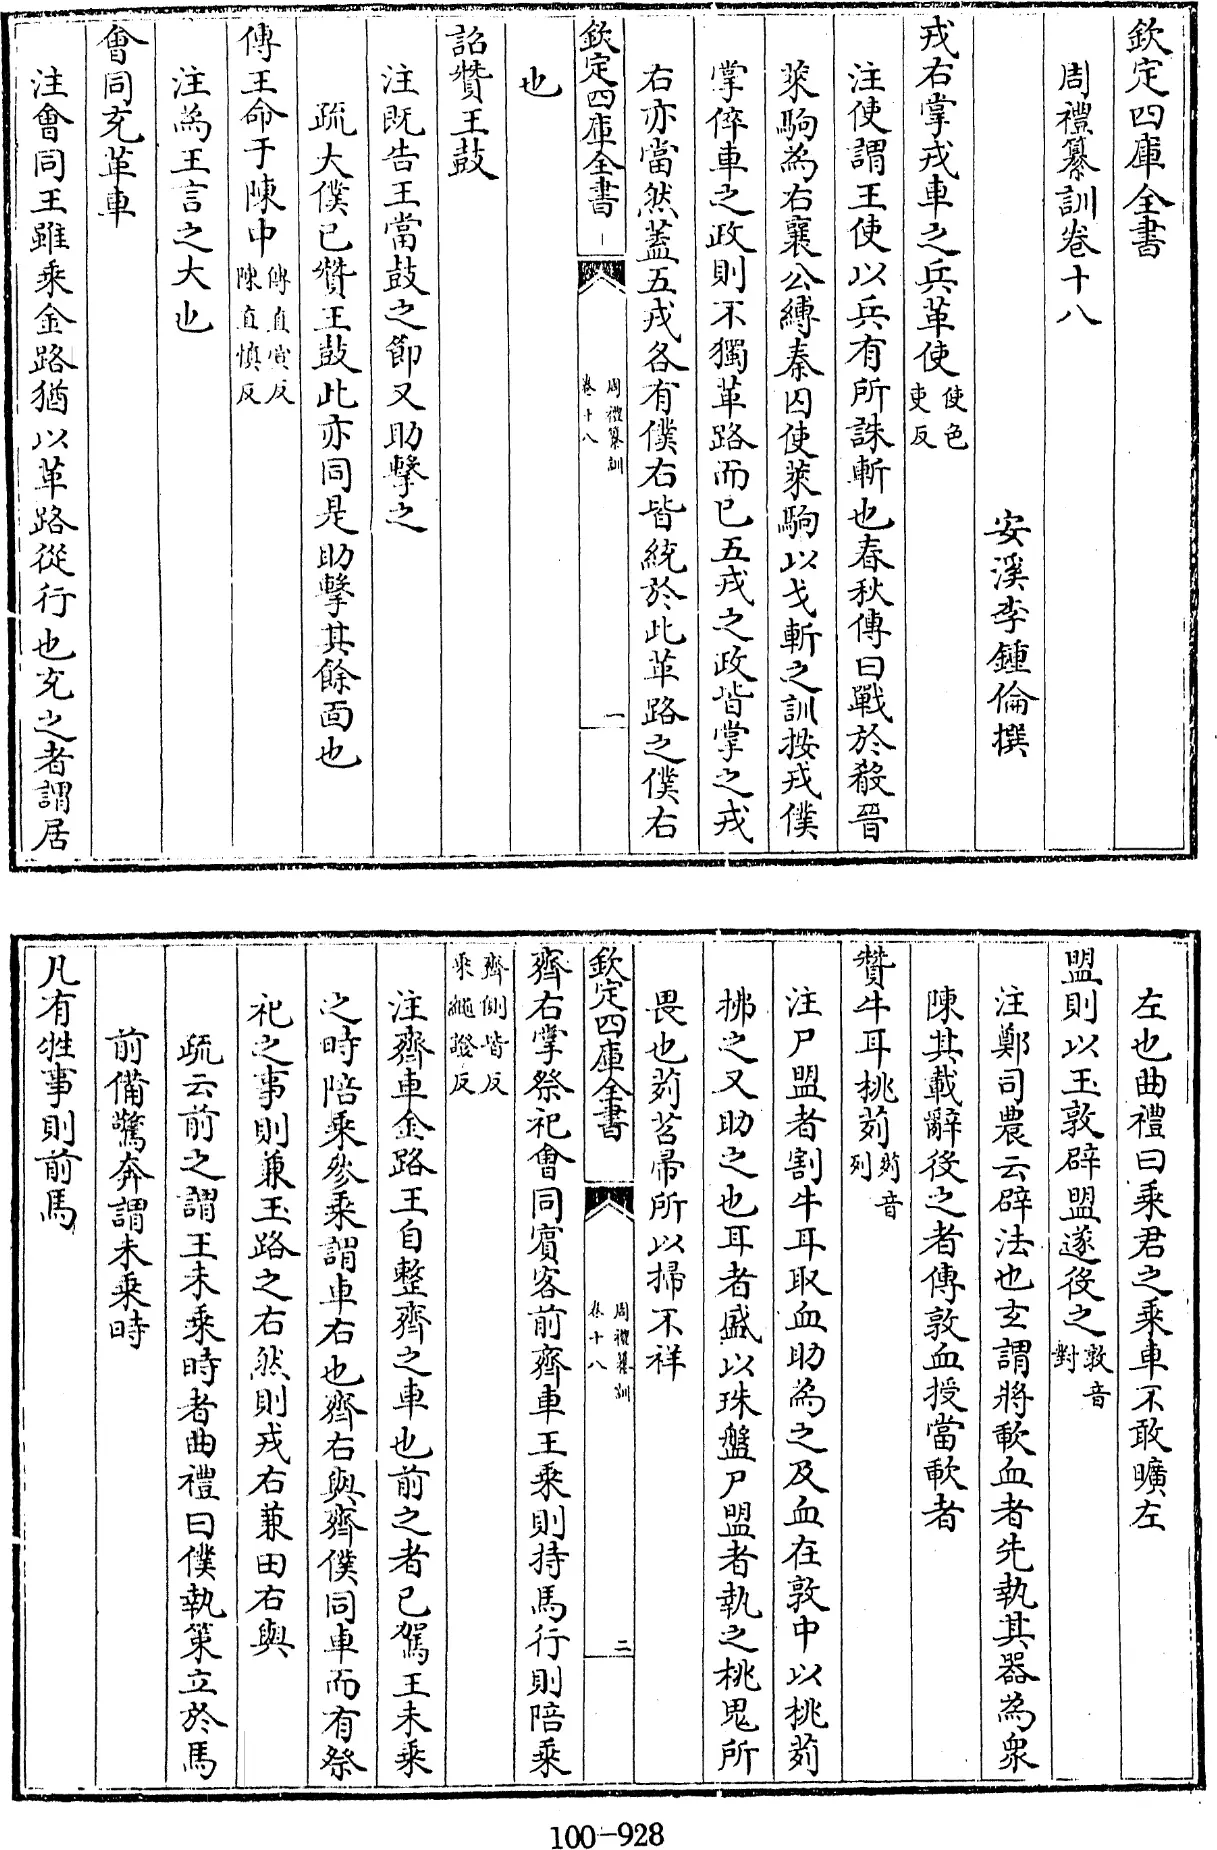 欽定四庫全書
周禮纂訓卷十八
安溪李鍾倫撰
戎右掌戎車之兵革使使色吏反
注使謂王使以兵有所誅斬也春秋傳曰戰於殽晉
萊駒為右襄公縛秦囚使萊駒以戈斬之訓按戎僕
掌倅車之政則不獨革路而已五戎之政皆掌之戎
右亦當然蓋五戎各有僕右皆統於此革路之僕右
欽定四庫全書
周禮纂訓
卷十八
一
也
詔贊王鼓
注既告王當鼓之節又助擊之
疏大僕已贊王鼓此亦同是助擊其餘面也
傳王命于陳中傳直專反陳直慎反
注為王言之大也
會同充革車
注會同王雖乘金路猶以革路從行也充之者謂居
左也曲禮曰乘君之乘車不敢曠左
盟則以玉敦辟盟遂役之敦音對
注鄭司農云辟法也玄謂將歃血者先執其器為衆
陳其載辭役之者傳敦血授當歃者
贊牛耳桃茢茢音列
注尸盟者割牛耳取血助為之及血在敦中以桃茢
拂之又助之也耳者盛以珠盤尸盟者執之桃鬼所
畏也茢苕帚所以掃不祥
欽定四庫全書
周禮纂訓
卷十八
二
齊右掌祭祀會同賓客前齊車王乘則持馬行則陪乘
齊側皆反乘繩證反
注齊車金路王自整齊之車也前之者已駕王未乘
之時陪乘參乘謂車右也齊右與齊僕同車而有祭
祀之事則兼玉路之右然則戎右兼田右與
疏云前之謂王未乘時者曲禮曰僕執策立於馬
前備驚奔謂未乘時
凡有牲事則前馬
100-928